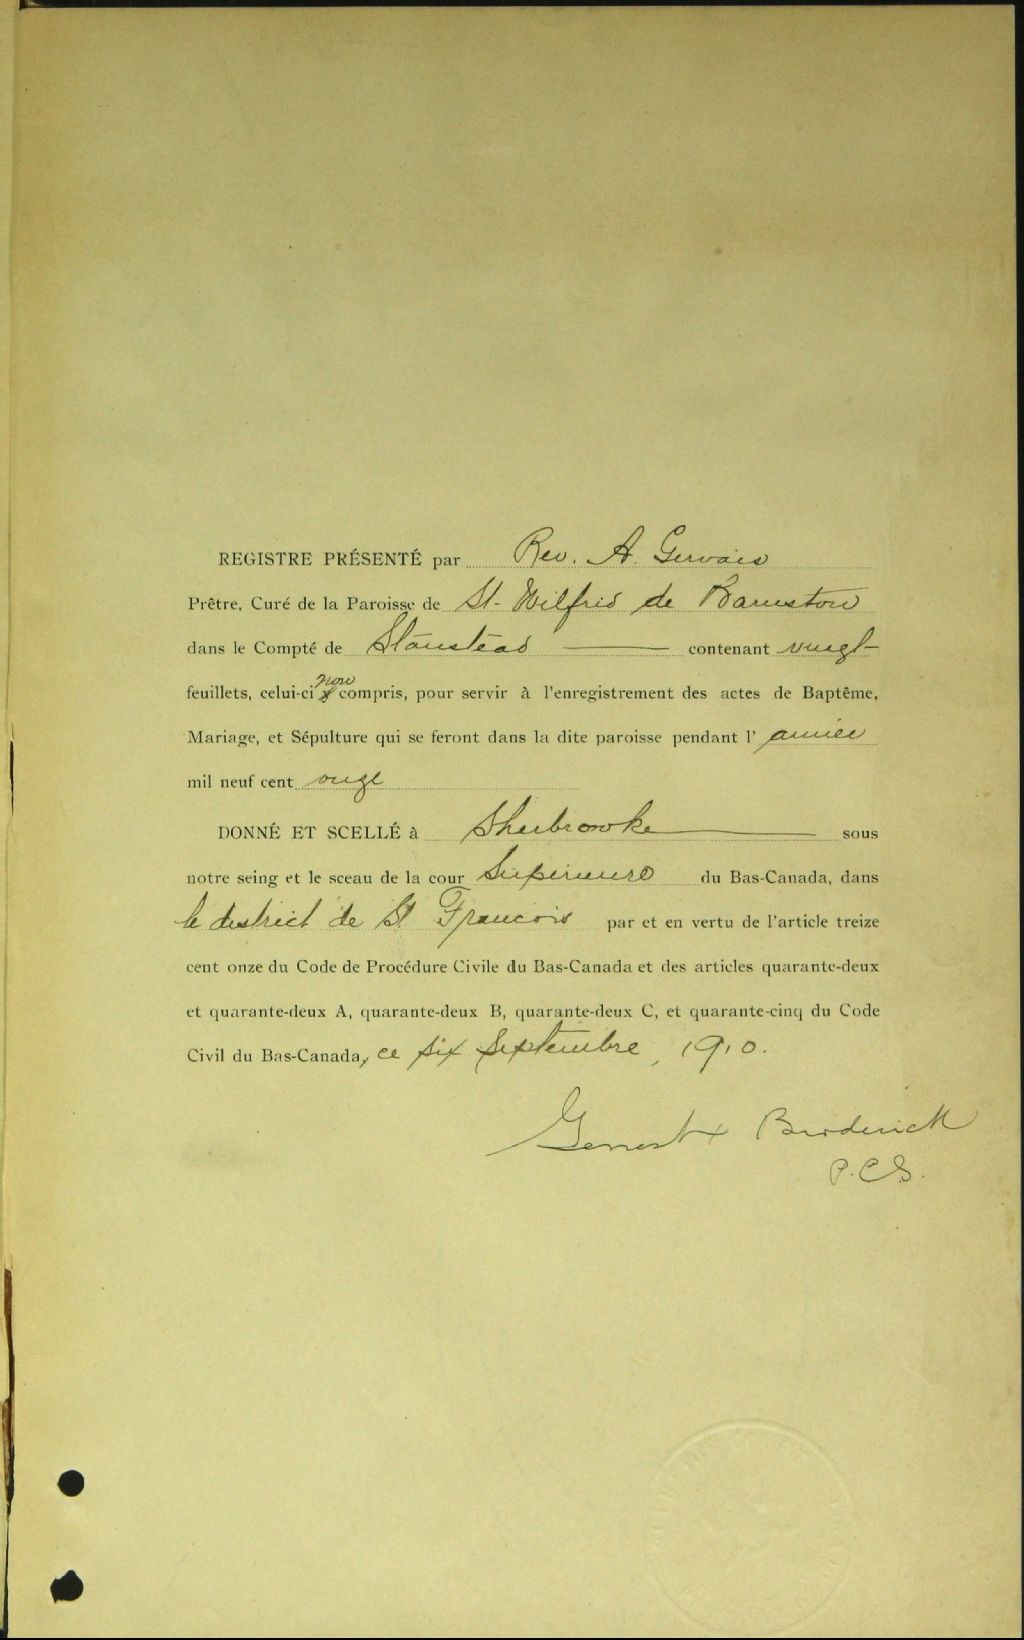 REGISTRE PRÉSENTÉ par Rev. A. Gervais
Prêtre, Curé de la Paroisse de St-Wilfrid de Barnston
dans le Compté de Stanstead contenant vingt
feuillets, celui-ci non compris, pour servir à l'enregistrement des actes de Baptême,
Mariage, et Sépulture qui se feront dans la dite paroisse pendant l'année
mil neuf cent onze
DONNÉ ET SCELLÉ à Sherbrooke sous
notre seing et le sceau de la cour Supérieure du Bas-Canada, dans
le district de St François par et en vertu de l'article treize
cent onze du Code de Procédure Civile du Bas-Canada et des articles quarante-deux
et quarante-deux A, quarante-deux B, quarante-deux C, et quarante-cinq du Code
Civil du Bas-Canada, ce six septembre, 1910.
Genest & Broderick
P.C.S.